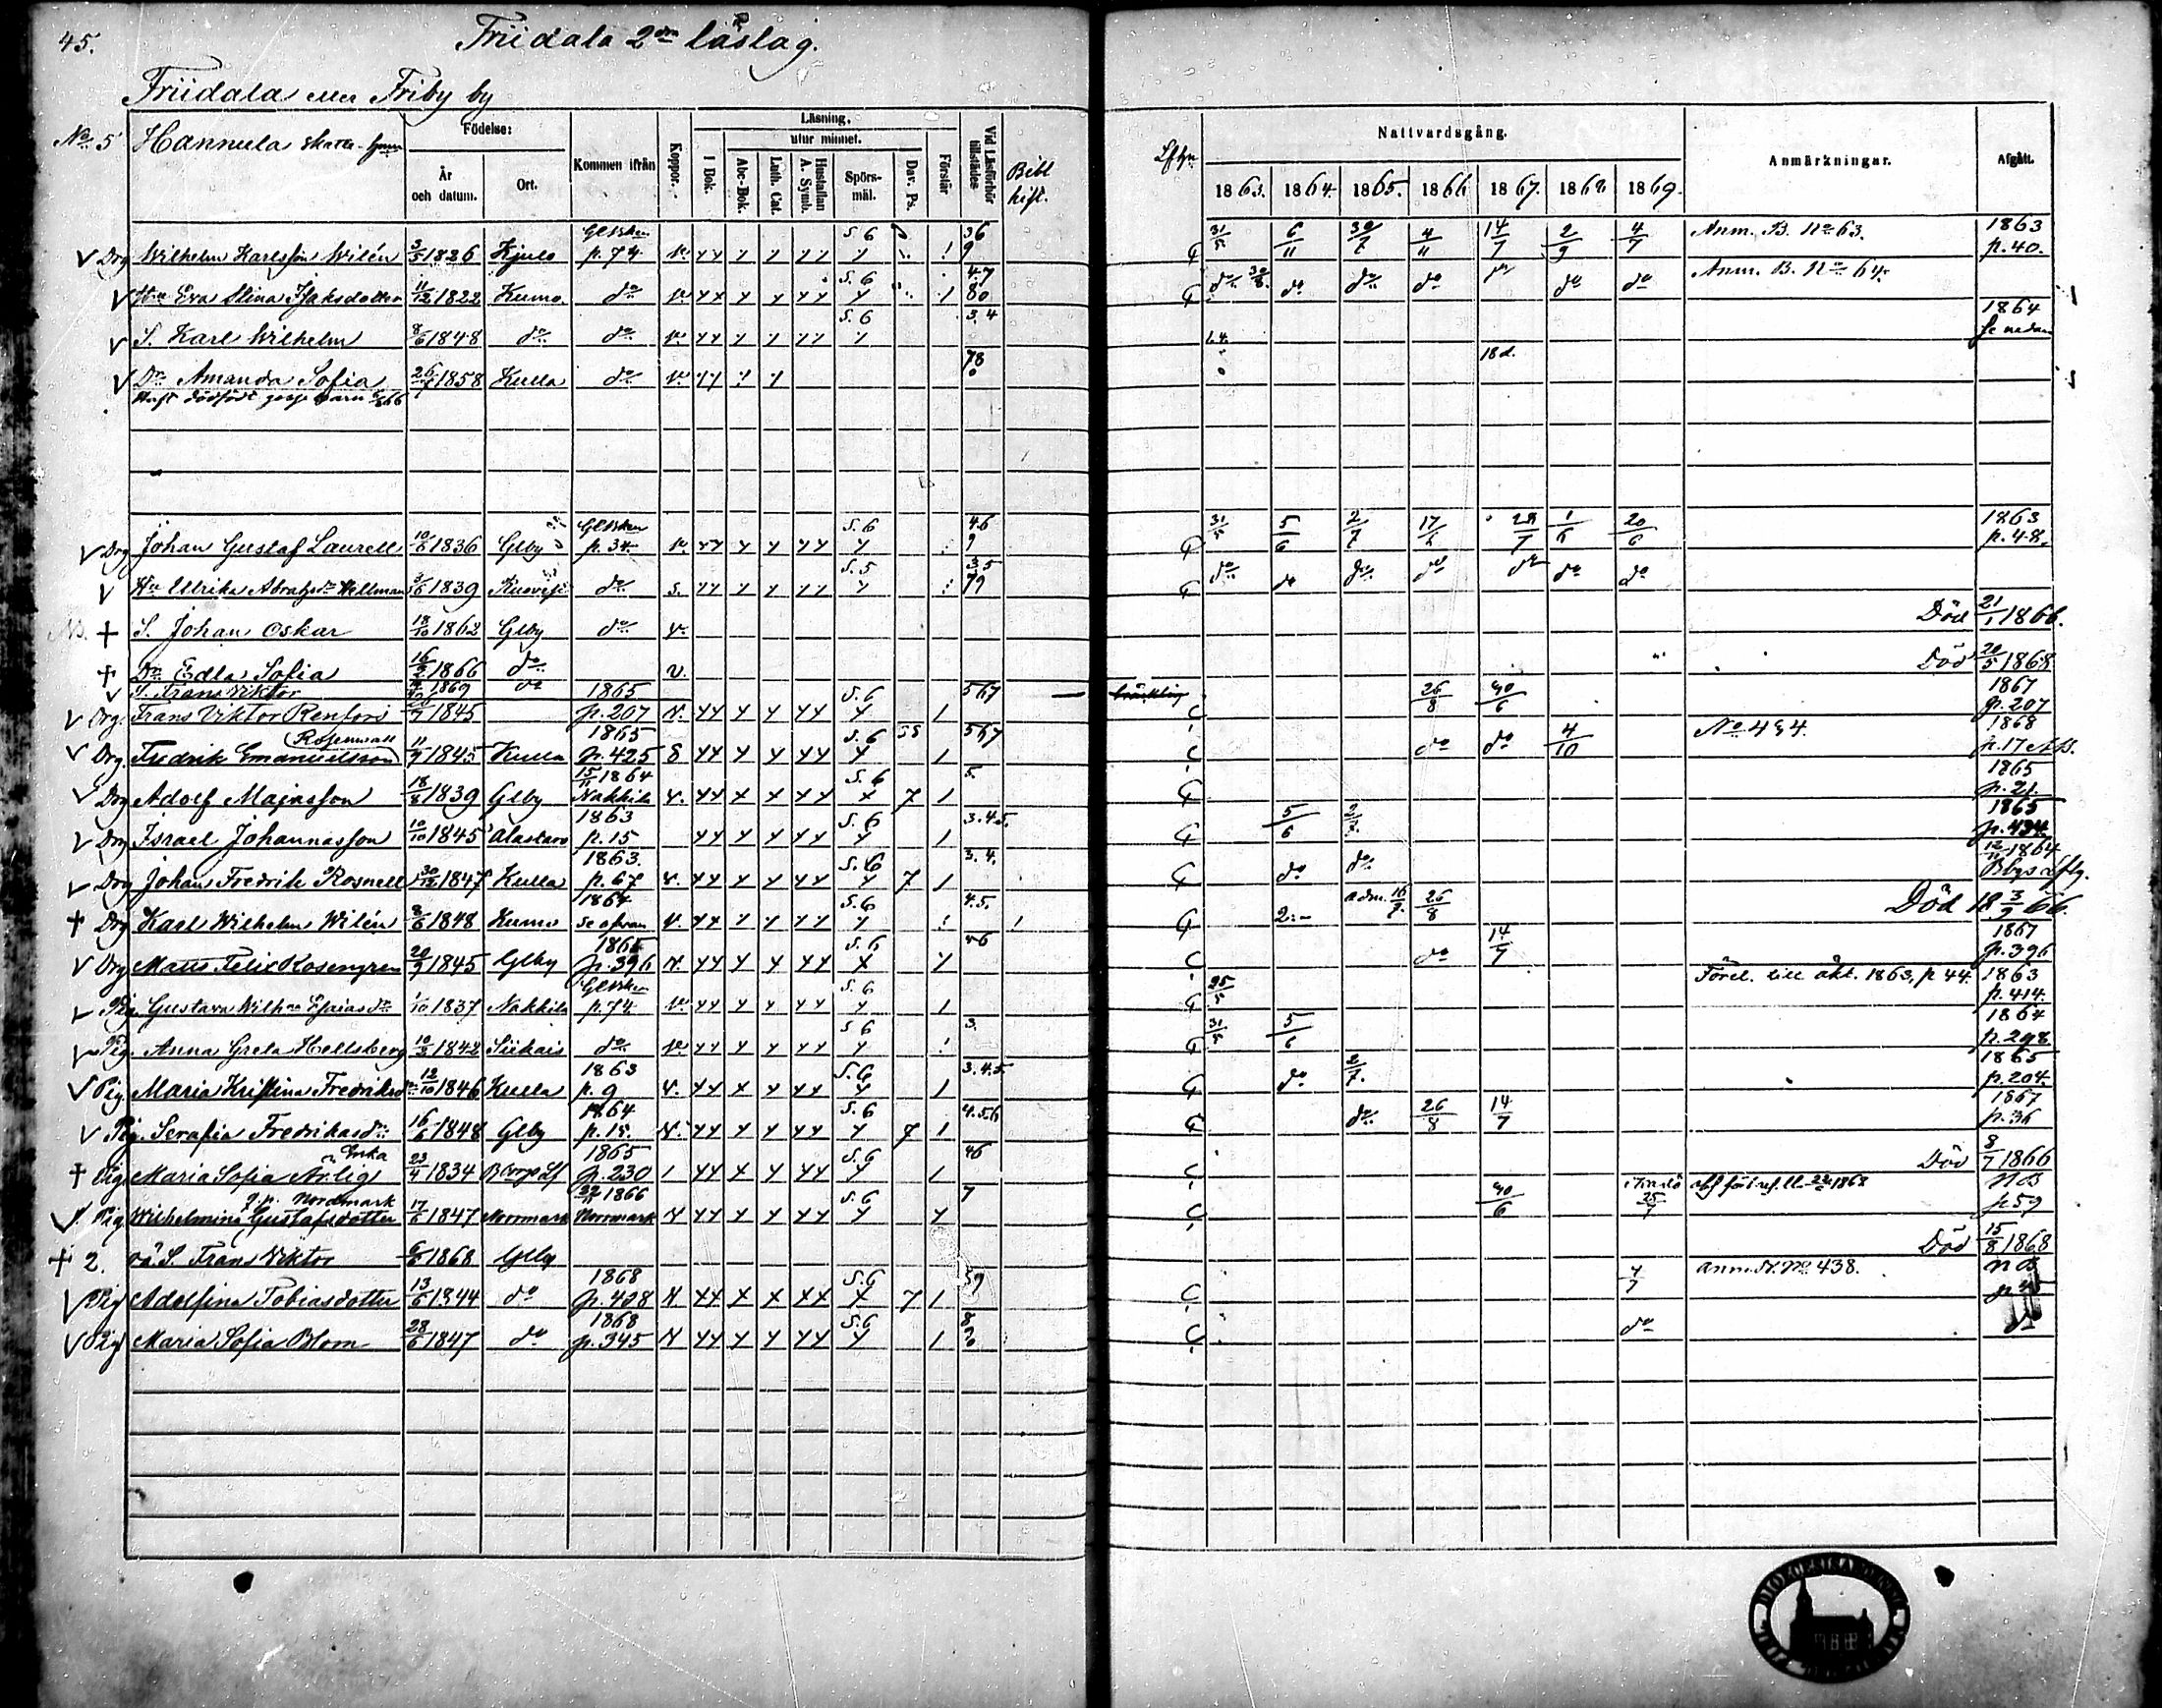 45.
Friidala 2dra läslag.
Friidala eller Friby by
No 5 Hannula skatte-hmn
Födelse: År och datum. Ort. Kommen ifrån Koppor. Läsning, I Bok. utur minnet. Abc-Bok. Luth. Cat. Hustaflan A. Symb. Spörs-mål. Dav. Ps. Förstår Vid Läsförhör tillstädes Bibl hist.
Nattvardsgång. 1863. 1864. 1865. 1866 1867. 1868. 1869. Anmärkningar. Afgått.
Drg Wilhelm Karlsson Wilén 3/5 1826 Kjulo p. 74 v. S. 6 36 9 31/5 6/11 30/7 4/11 14/7 2/9 4/7 Anm. B. No 63. 1863 p. 40.
Hu Eva Stina Isaksdotter 11/12 1822 Kumo do v. S. 6 4.7 80 do do do do do do Anm. B. No 64.
S. Karl Wilhelm 8/6 1848 do do v. S. 6 3.4 1864 se nedan
Dr Amanda Sofia 26/7 1858 Kulla do v. 78 18 d.
Haft dödfödt gosse barn
Drg Johan Gustaf Laurell 10/6 1836 Glby p. 34 v. S. 6 46 9 31/5 5/6 2/7 17/6 28/7 1/6 20/6 1863 p. 48.
Hu Ulrika Abrahsdr Hellman 3/6 1839 do s. S. 5 35 79 do do do do do do do
+ S. Johan Oskar 18/10 1862 Glby do v. Död 21/1 1866.
+ Dr Edla Sofia 16/2 1866 do v. Död 20/5 1868
S. Frans Viktor 1869 do
Drg. Frans Viktor Renfors 1845 1865 p. 207 v. S. 6 567 26/8 30/6 1867 p. 207
Drg. Fredrik Emanuelsson Rosenwall 11/9 1845 Kulla 1865 p. 425 S S. 6 567 do do 4/10 No 434. 1868 p. 17
Drg Adolf Majasson 18/8 1839 Glby 15/11 1864 Nakkila v. S. 6 7 5. 1865 p. 21.
Drg Israel Johannasson 10/10 1845 Alastaro 1863 p. 15 S. 6 3.4.5. 5/6 2/7 1865 p. 434
Drg Johan Fredrik Rosnell 30/12 1847 Kulla 1863. p. 67 v. S. 6 7 3.4. do do 12/11 1864
+ Drg Karl Wilhelm Wilén 8/6 1848 Kumo 1864 se ofvan v. S. 6 4.5. 2:- adm. 16/7 26/8 Död 18 3/9 66.
Drg Matts Felix Rosengren 20/9 1845 Glby 1865 p. 396 v. S. 6 46 do 14/7 1867 p. 396
Pig Gustava Wilhna Esaiasdr 1/10 1837 Nakkila p. 74 v. S. 6 25/5 Förel. till äkt. 1863, p 44. 1863 p. 414.
Pig. Anna Greta Hellsberg 10/3 1842 Siikais do v. S. 6 3. 31/5 5/6 1864 p. 298
Pig. Maria Kristina Fredriksdr 12/10 1846 Kulla 1863 p. 9 v. S. 6 3.4.5 do 2/7. 1865 p. 204.
Pig. Serafia Fredrikasdr 16/6 1848 Glby 1864 p. 15. v. S. 6 7 4.5.6 do 26/8 14/7 1867 p. 36
+ Pig Maria Sofia Arlig Enka 23/4 1834 1865 p. 230 S. 6 46 Död 8/7 1866
Pig. Wilhelmina Gustafsdotter Nordmark 17/6 1847 Norrmark 1866 Norrmark v S. 6 7 30/6 1868 NB p 59
+ 2. oä. S. Frans Viktor 6/6 1868 Glby Död 15/8 1868
Pig Adolfina Tobiasdotter 13/6 1844 do 1868 p. 428 v S. 6 7 4/7 anm. No 438. NB
Pig Maria Sofia Blom 28/6 1847 do 1868 p. 345 v S. 6 do do